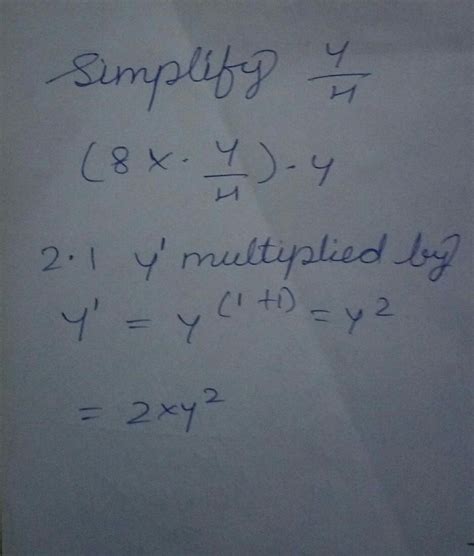 Simplify y/4
(8x · y/4) · y
2·1 y' multiplied by
y' = y^(1+1) = y²
= 2xy²